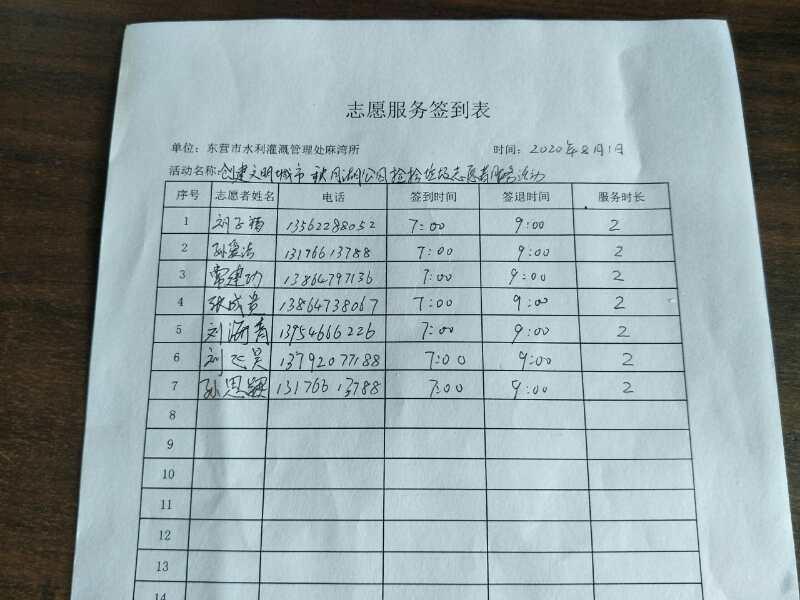 志愿服务签到表
单位：东营市水利灌溉管理处麻湾所 时间：2020年8月1日
活动名称 创建文明城市 秋月湖公园捡拾垃圾志愿者服务活动
序号 志愿者姓名 电话 签到时间 签退时间 服务时长
1 刘子梅 13562288052 7:00 9:00 2
2 孙 13176613788 7:00 9:00 2
3 常建功 13864797136 7:00 9:00 2
4 张成岩 13864738067 7:00 9:00 2
5 刘海青 13954666226 7:00 9:00 2
6 刘飞昊 13792077188 7:00 9:00 2
7 孙思颖 13176613788 7:00 9:00 2
8
9
10
11
12
13
14